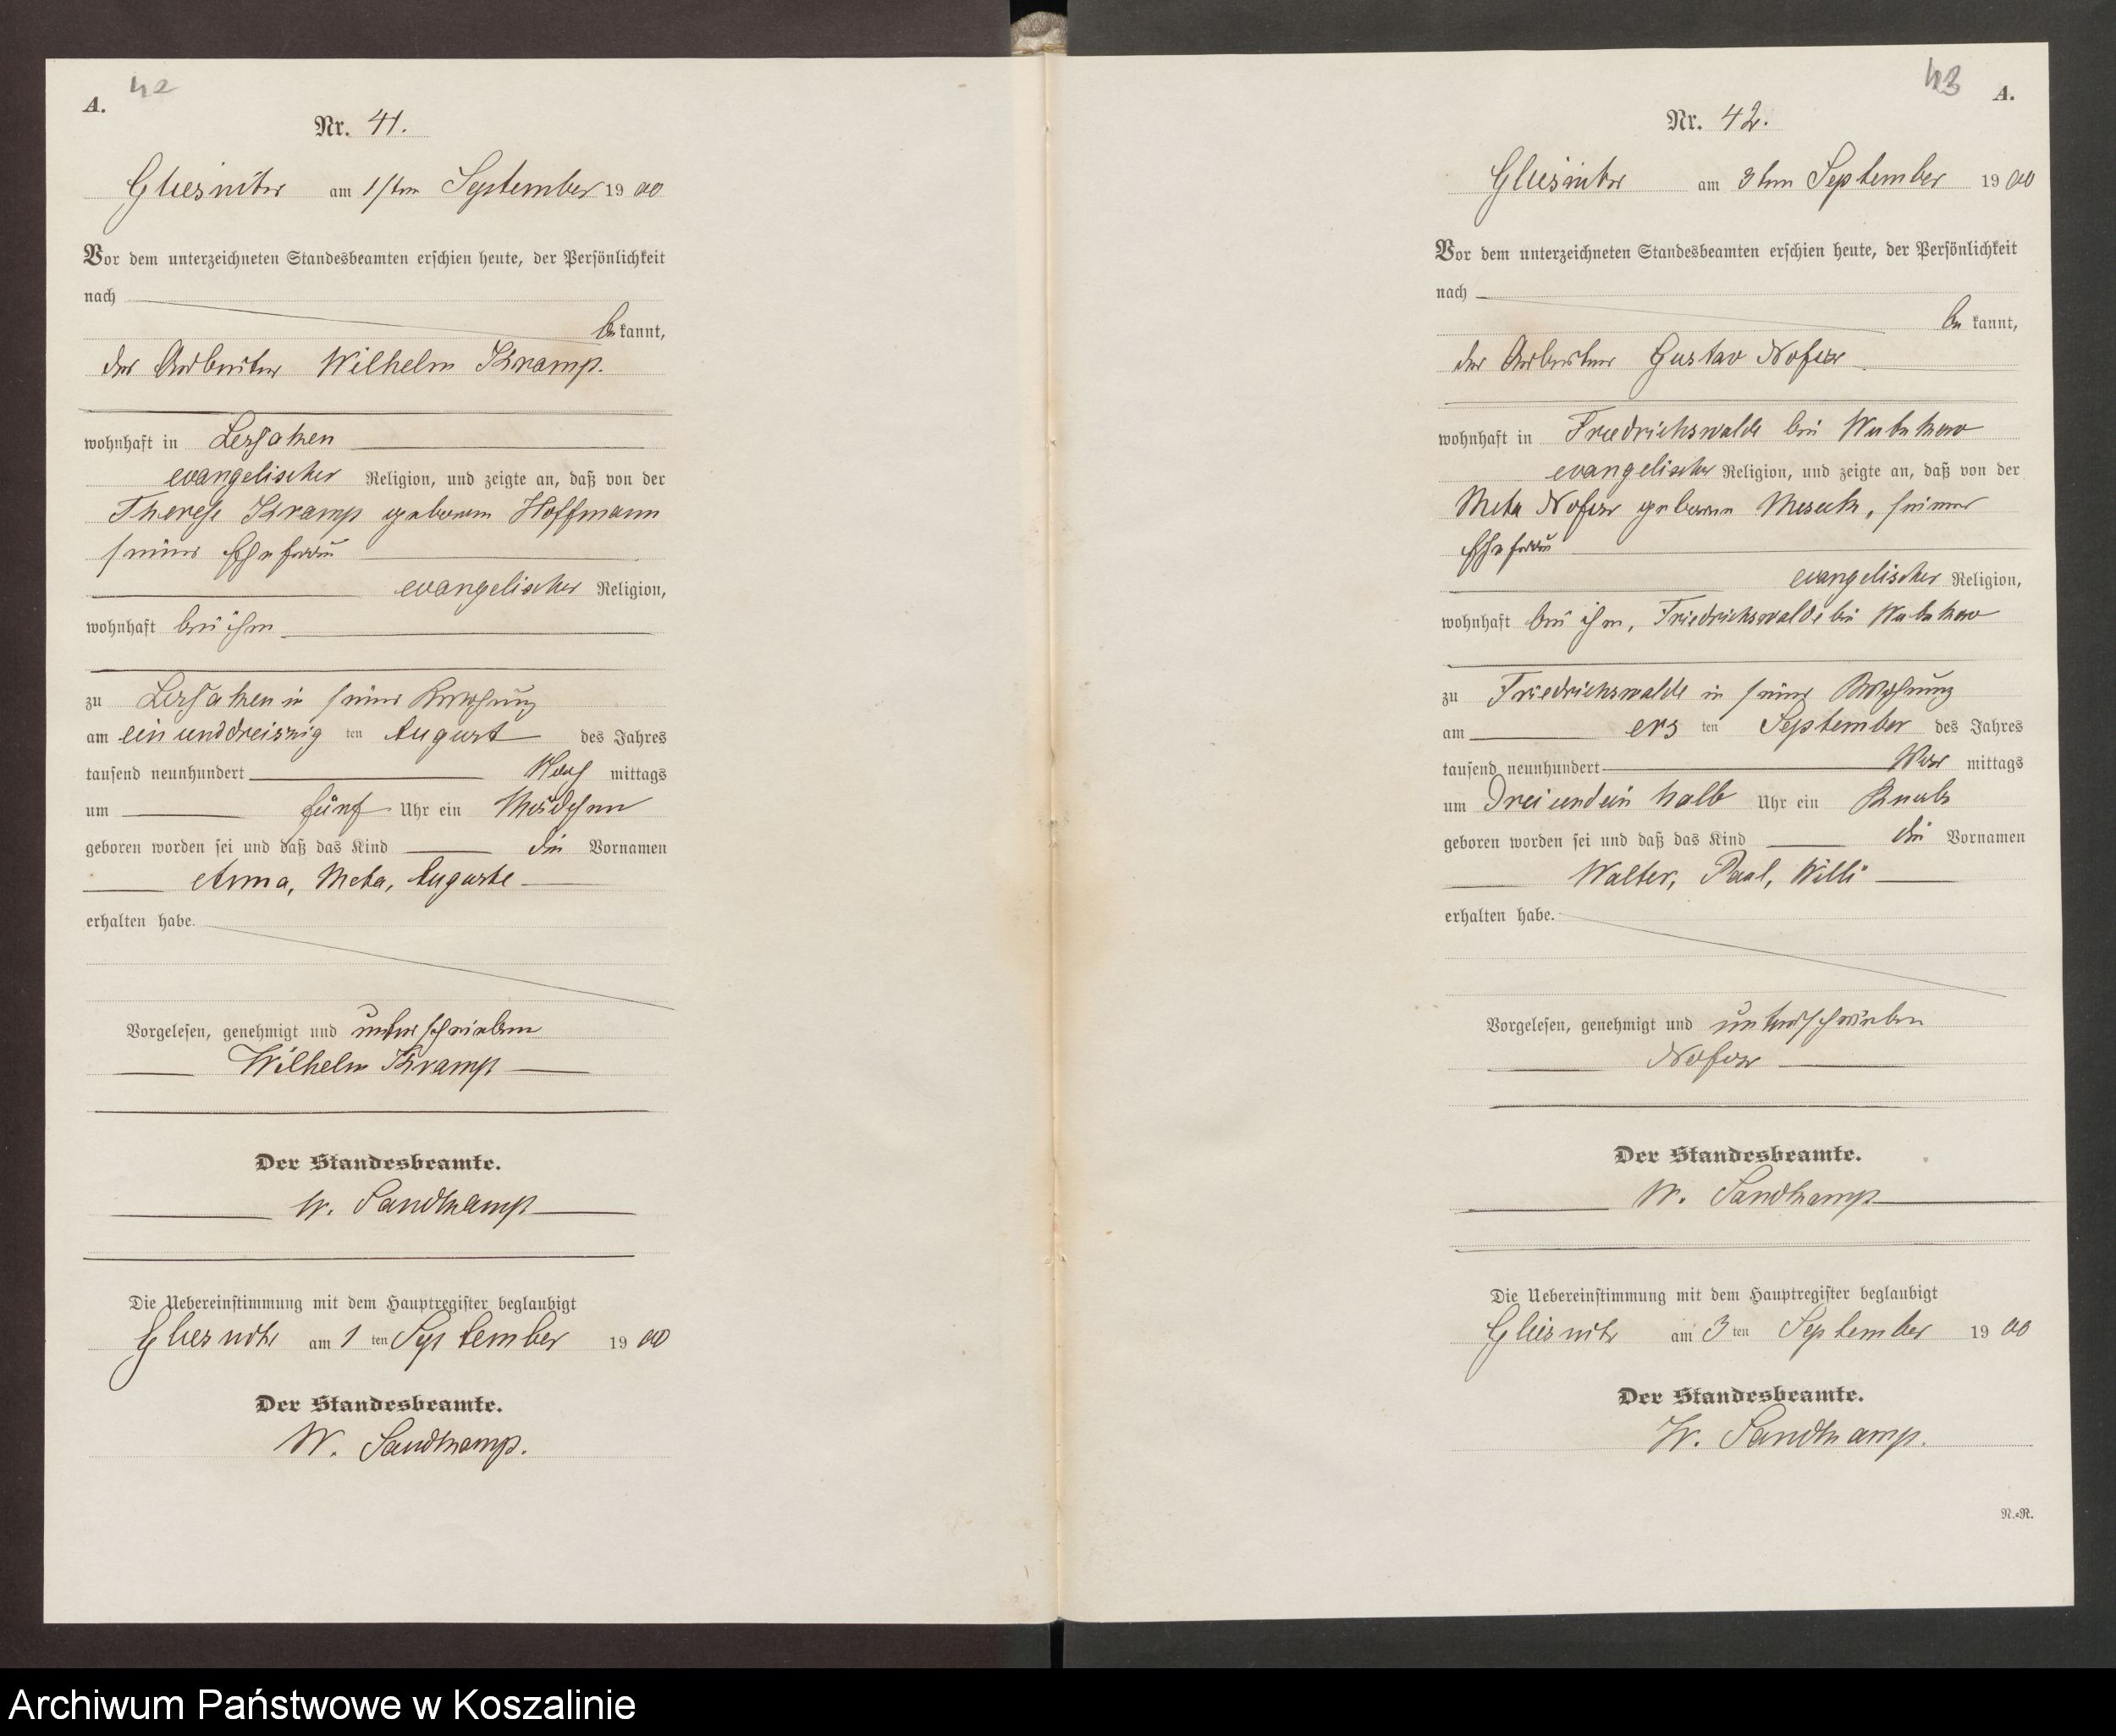 A.
42
Nr. 41.
Gliesnitz am 1ten September 1900
Vor dem unterzeichneten Standesbeamten erschien heute, der Persönlichkeit
nach
be kannt,
der Arbeiter Wilhelm Kramp.
wohnhaft in
evangelischer Religion, und zeigte an, daß von der
Therese Kramp geborenen Hoffmann
seiner Ehefrau
evangelischer Religion,
wohnhaft bei ihm
zu in seiner Wohnung
am einunddreiszig ten August des Jahres
tausend neunhundert Nach mittags
um fünf Uhr ein Mädchen
geboren worden sei und daß das Kind die Vornamen
Anna, Meta, Auguste
erhalten habe.
Vorgelesen, genehmigt und unterschrieben
Wilhelm Kramp
Der Standesbeamte.
W. Sandkamp
Die Uebereinstimmung mit dem Hauptregister beglaubigt
Gliesnitz am 1 ten September 1900
Der Standesbeamte.
W. Sandkamp.
43
A.
Nr. 42.
Gliesnitz am 3ten September 1900
Vor dem unterzeichneten Standesbeamten erschien heute, der Persönlichkeit
nach
be kannt,
der Arbeiter Gustav
wohnhaft in Friedrichswalde bei
evangelischer Religion, und zeigte an, daß von der
Meta geborene, seiner
Ehefrau
evangelischer Religion,
wohnhaft bei ihm, Friedrichswalde bei
zu Friedrichswalde in seiner Wohnung
am ers ten September des Jahres
tausend neunhundert Vor mittags
um Drei und ein halb Uhr ein Knabe
geboren worden sei und daß das Kind die Vornamen
Walter, Paul, Willi
erhalten habe.
Vorgelesen, genehmigt und unterschrieben
Der Standesbeamte.
W. Sandkamp
Die Uebereinstimmung mit dem Hauptregister beglaubigt
Gliesnitz am 3 ten September 1900
Der Standesbeamte.
W. Sandkamp.
N.-R.
Archiwum Państwowe w Koszalinie